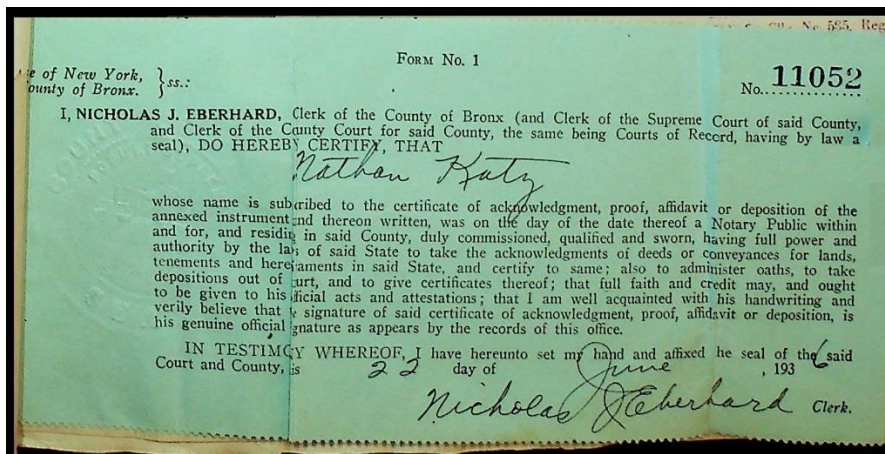 No. 535, Reg
FORM No. 1
e of New York, } ss.:
ounty of Bronx.
No. 11052
I, NICHOLAS J. EBERHARD, Clerk of the County of Bronx (and Clerk of the Supreme Court of said County,
and Clerk of the County Court for said County, the same being Courts of Record, having by law a
seal), DO HEREBY CERTIFY, THAT
Nathan Katz
whose name is subcribed to the certificate of acknowledgment, proof, affidavit or deposition of the
annexed instrument nd thereon written, was on the day of the date thereof a Notary Public within
and for, and residin in said County, duly commissioned, qualified and sworn, having full power and
authority by the la s of said State to take the acknowledgments of deeds or conveyances for lands,
tenements and here aments in said State, and certify to same; also to administer oaths, to take
depositions out of urt, and to give certificates thereof; that full faith and credit may, and ought
to be given to his ficial acts and attestations; that I am well acquainted with his handwriting and
verily believe that signature of said certificate of acknowledgment, proof, affidavit or deposition, is
his genuine official gnature as appears by the records of this office.
IN TESTIM Y WHEREOF, I have hereunto set my hand and affixed he seal of the said
Court and County, is 22 day of June , 1936
Nicholas J Eberhard Clerk.